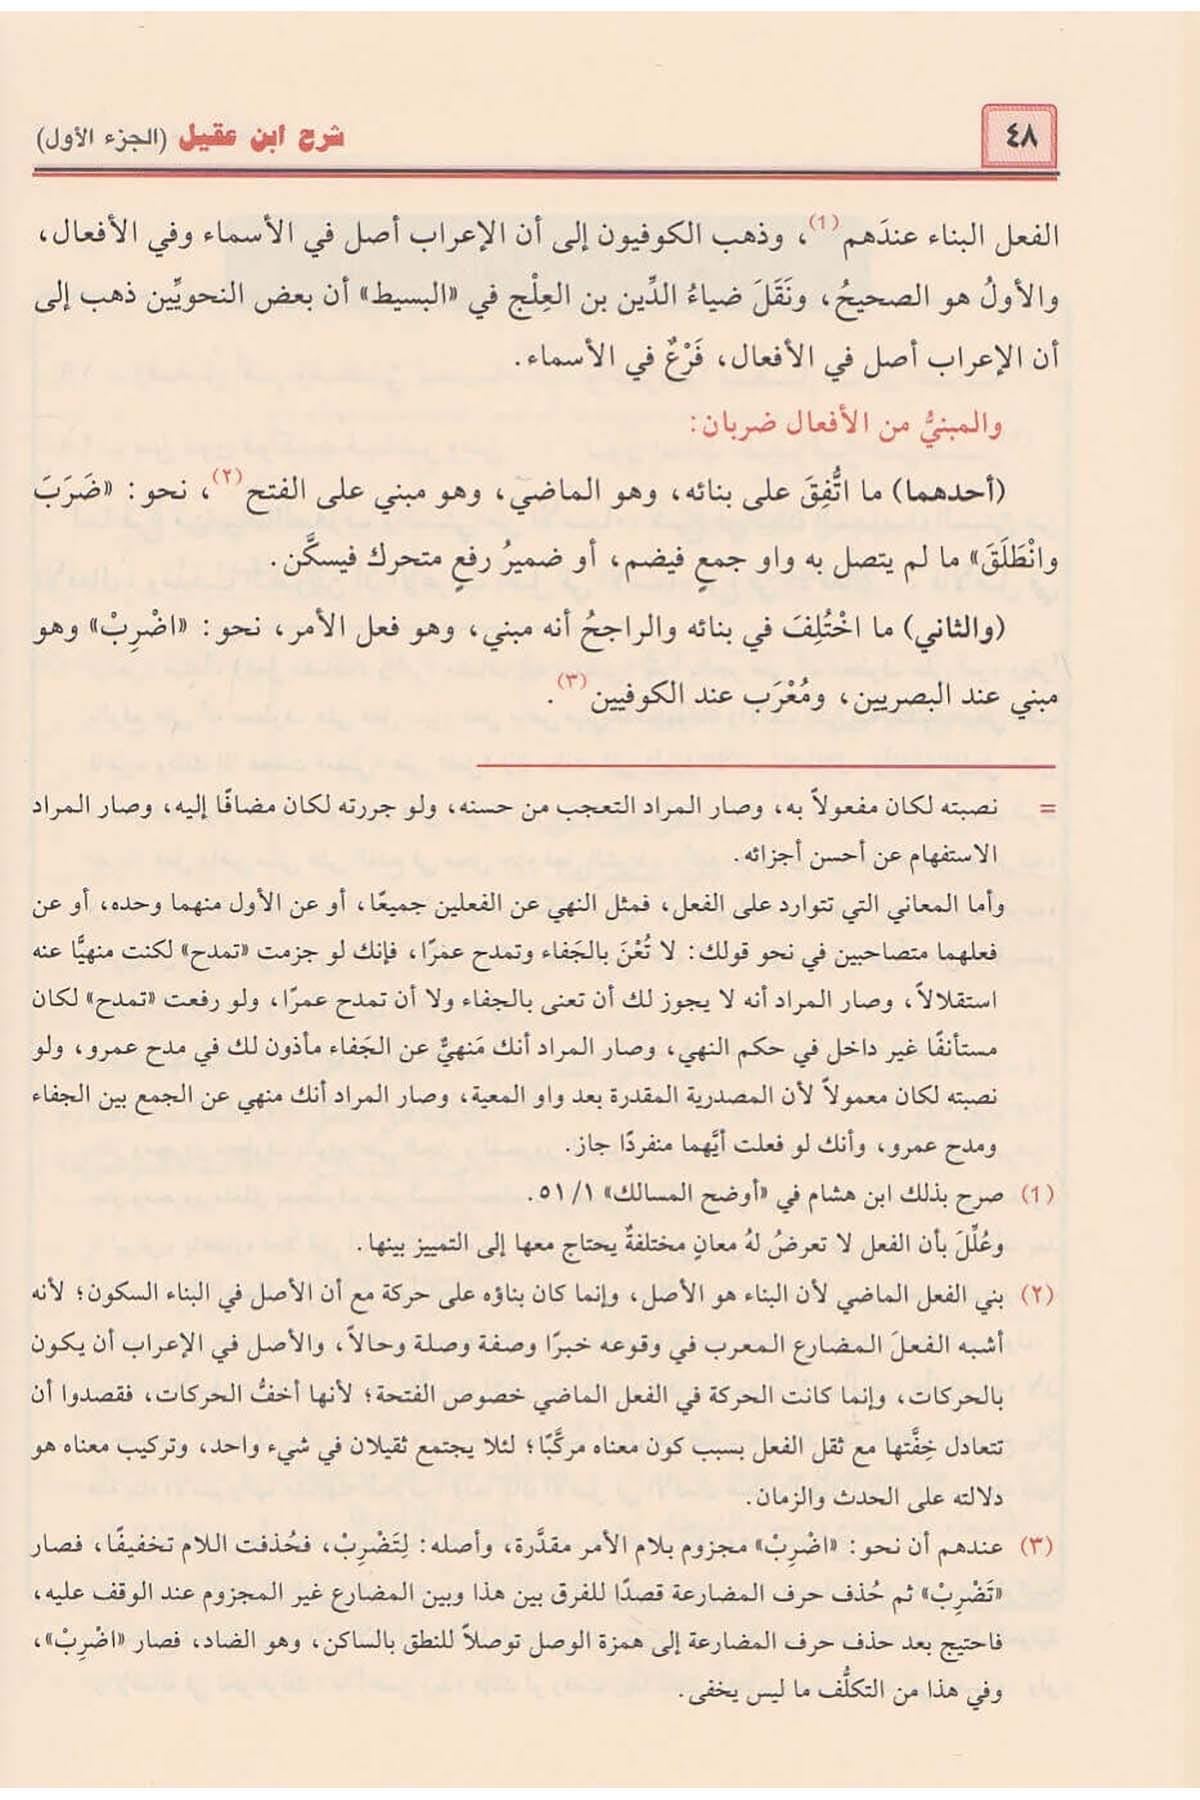 ٤٨
شرح ابن عقيل (الجزء الأول)
الفعل البناء عندَهم(١)، وذهب الكوفيون إلى أن الإعراب أصل في الأسماء وفي الأفعال،
والأولُ هو الصحيحُ، ونَقَلَ ضياءُ الدِّين بن العِلْج في «البسيط» أن بعض النحويِّين ذهب إلى
أن الإعراب أصل في الأفعال، فَرْعٌ في الأسماء.
والمبنيُّ من الأفعال ضربان:
(أحدهما) ما اتُّفِقَ على بنائه، وهو الماضي، وهو مبني على الفتح(٢)، نحو: «ضَرَبَ
وانْطَلَقَ» ما لم يتصل به واو جمعٍ فيضم، أو ضميرُ رفعٍ متحرك فيسكَّن.
(والثاني) ما اخْتُلِفَ في بنائه والراجحُ أنه مبني، وهو فعل الأمر، نحو: «اضْرِبْ» وهو
مبني عند البصريين، ومُعْرَب عند الكوفيين(٣).
= نصبته لكان مفعولاً به، وصار المراد التعجب من حسنه، ولو جررته لكان مضافًا إليه، وصار المراد
الاستفهام عن أحسن أجزائه.
وأما المعاني التي تتوارد على الفعل، فمثل النهي عن الفعلين جميعًا، أو عن الأول منهما وحده، أو عن
فعلهما متصاحبين في نحو قولك: لا تُعْنَ بالجَفاء وتمدح عمرًا، فإنك لو جزمت «تمدح» لكنت منهيًّا عنه
استقلالاً، وصار المراد أنه لا يجوز لك أن تعنى بالجفاء ولا أن تمدح عمرًا، ولو رفعت «تمدح» لكان
مستأنفًا غير داخل في حكم النهي، وصار المراد أنك مَنهيٌّ عن الجَفاء مأذون لك في مدح عمرو، ولو
نصبته لكان معمولاً لأن المصدرية المقدرة بعد واو المعية، وصار المراد أنك منهي عن الجمع بين الجفاء
ومدح عمرو، وأنك لو فعلت أيَّهما منفردًا جاز.
(١) صرح بذلك ابن هشام في «أوضح المسالك» ٥١/١.
وعُلِّلَ بأن الفعل لا تعرضُ لهُ معانٍ مختلفةٌ يحتاج معها إلى التمييز بينها.
(٢) بني الفعل الماضي لأن البناء هو الأصل، وإنما كان بناؤه على حركة مع أن الأصل في البناء السكون؛ لأنه
أشبه الفعلَ المضارع المعرب في وقوعه خبرًا وصفة وصلة وحالاً، والأصل في الإعراب أن يكون
بالحركات، وإنما كانت الحركة في الفعل الماضي خصوص الفتحة؛ لأنها أخفُّ الحركات، فقصدوا أن
تتعادل خِفَّتها مع ثقل الفعل بسبب كون معناه مركَّبًا؛ لئلا يجتمع ثقيلان في شيء واحد، وتركيب معناه هو
دلالته على الحدث والزمان.
(٣) عندهم أن نحو: «اضْرِبْ» مجزوم بلام الأمر مقدَّرة، وأصله: لِتَضْرِبْ، فحُذفت اللام تخفيفًا، فصار
«تَضْرِبْ» ثم حُذف حرف المضارعة قصدًا للفرق بين هذا وبين المضارع غير المجزوم عند الوقف عليه،
فاحتيج بعد حذف حرف المضارعة إلى همزة الوصل توصلاً للنطق بالساكن، وهو الضاد، فصار «اضْرِبْ»،
وفي هذا من التكلُّف ما ليس يخفى.